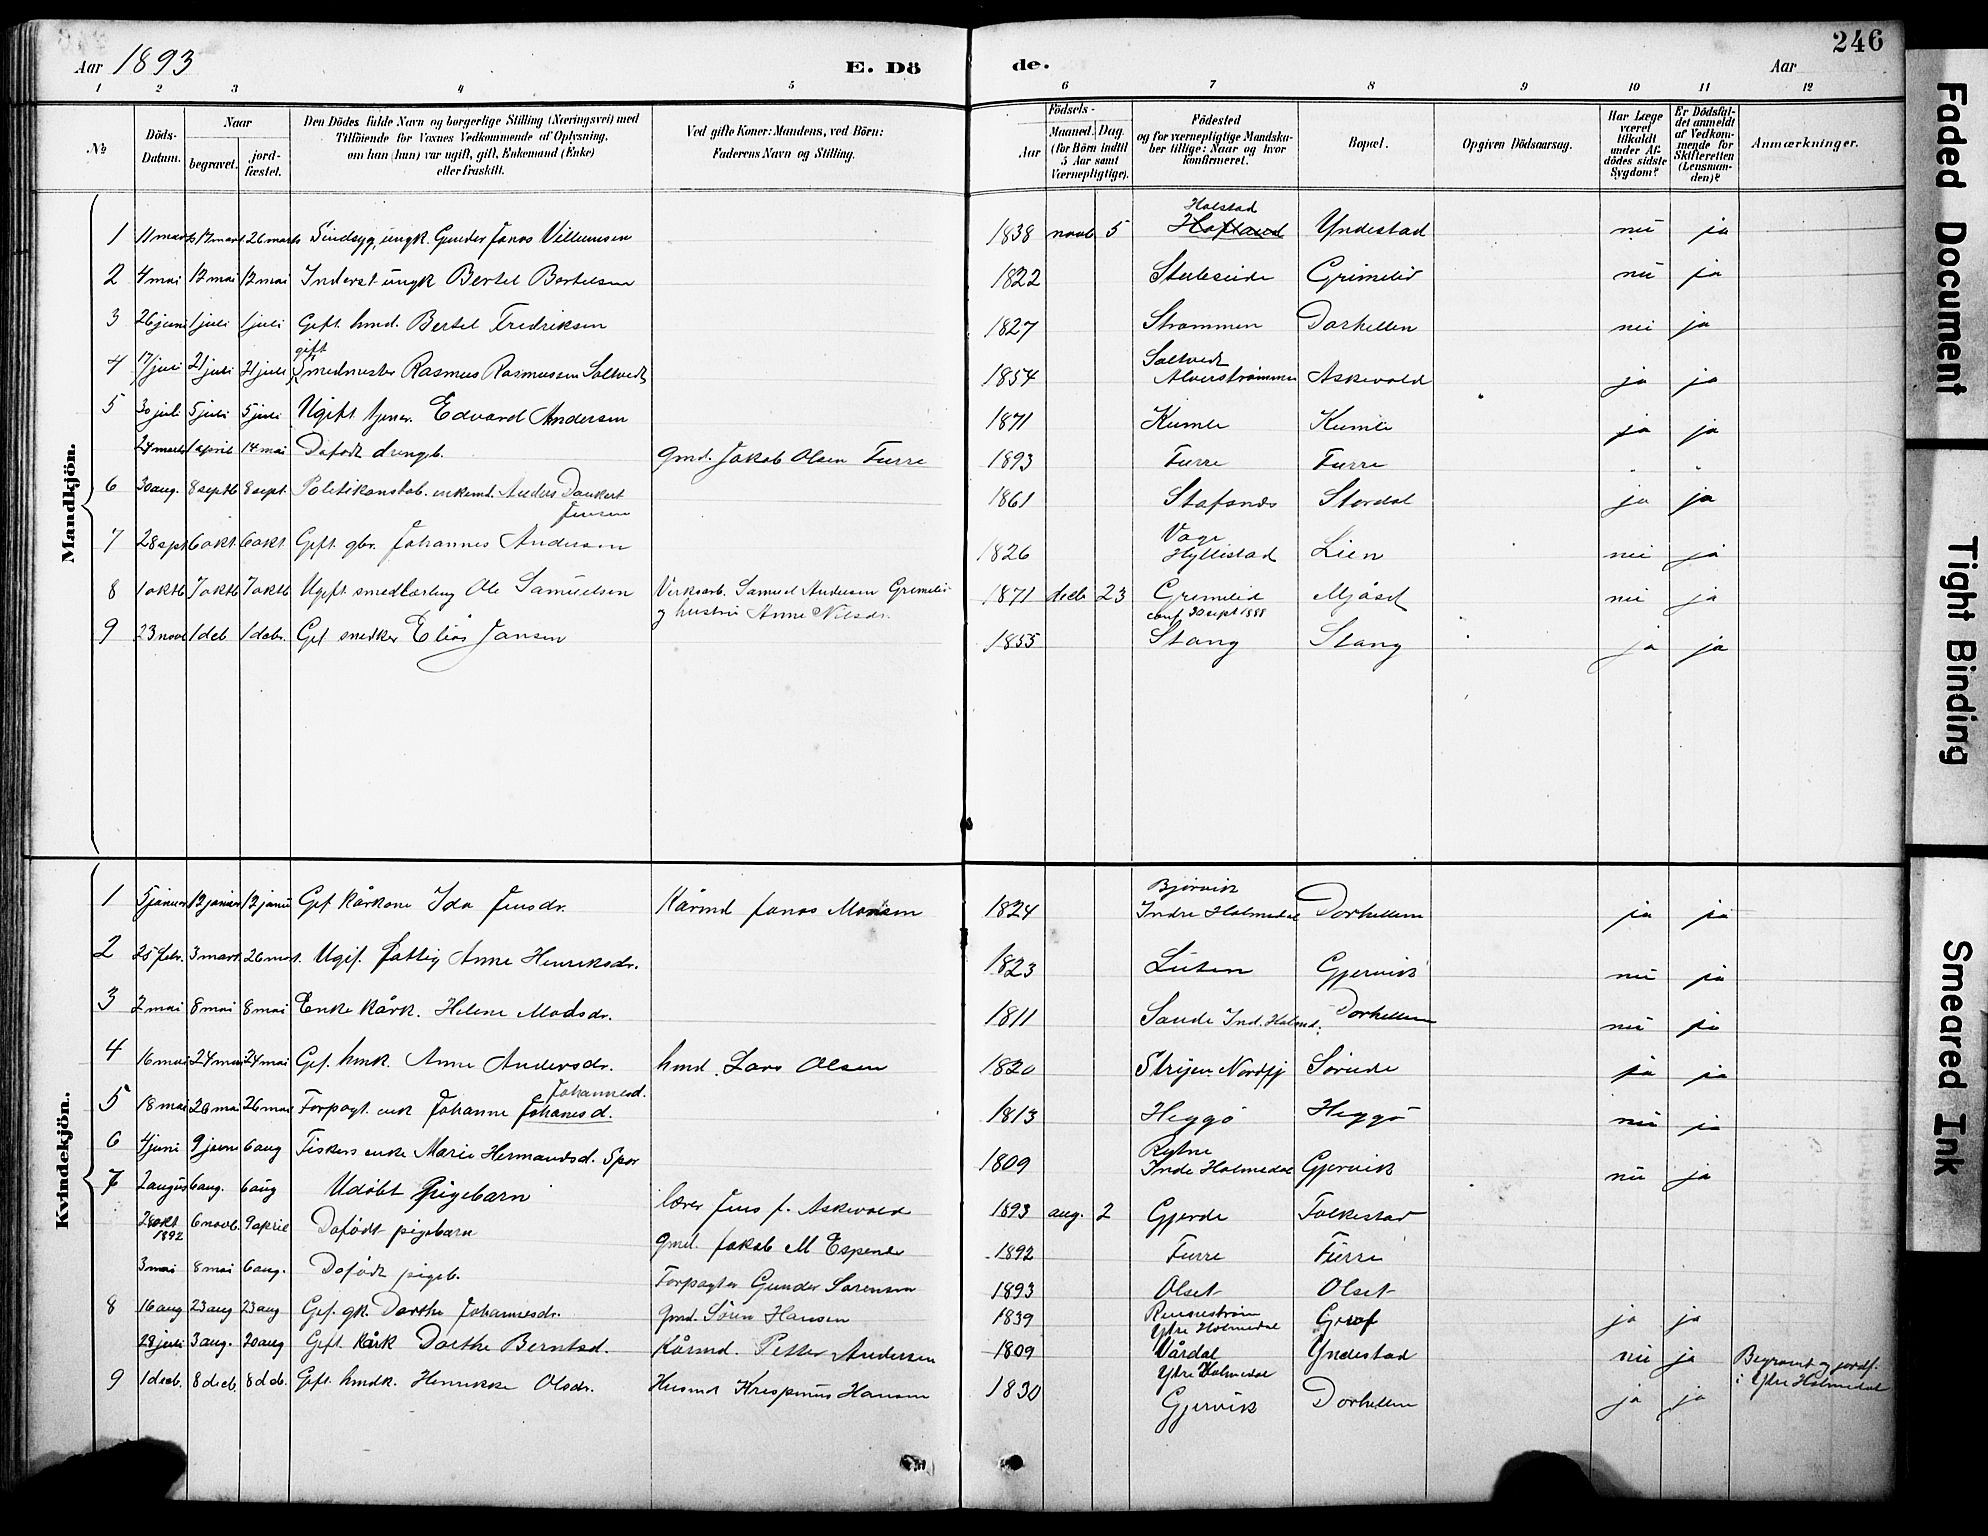 246
Aar 1893 E. Dö de. Aar
1 2 3 4 5 6 7 8 9 10 11 12
№
Döds-Datum.
Naar
begravet. jord-fæstet.
Den Dödes fulde Navn og borgerlige Stilling (Næringsvei) med
Tilföiende for Voxnes Vedkommende af Oplysning,
om han (hun) var ugift, gift, Enkemand (Enke)
eller fraskilt.
Ved gifte Koner: Mandens, ved Börn:
Faderens Navn og Stilling.
Födsels-
Aar Maaned. Dag.
(for Börn indtil
5 Aar samt
Værnepligtige).
Födested
og for værnepligtige Mandska-
ber tillige: Naar og hvor
konfirmeret.
Bopæl.
Opgiven Dödsaarsag.
Har Læge
været
tilkaldt
under Af-
dödes sidste
Sygdom?
Er Dödsfal-
det anmeldt
af Vedkom-
mende for
Skifteretten
(Lensman-
den)?
Anmærkninger.
Mandkjön.
1 11 marts 17 marts 26 marts Sindsyg, ungk. Gunder Janos Villumsen 1838 novb 5 Holstad Yndestad nei ja
2 4 mai 12 mai 12 mai Inderst ungk Bertel Bertelsen 1822 Stubseide Grimelid nei ja
3 26 juni 1 juli 1 juli Gift hmd. Bertel Fredriksen 1827 Strommen Dorhellen nei ja
4 17/juli 21 juli 21 juli gift Smedmester Rasmus Rasmussen Soltvedt 1854 Soltvedt Alverstrømmen Askevold ja ja
5 30 juli 5 juli 5 juli Ugift tjener Edvard Andersen 1871 Kumle Kumle ja ja
24 marts 1 april 14 mai Dofødt drengb. gmd. Jakob Olsen Furre 1893 Furre Furre
6 30 aug. 8 septb 8 sept. Politikonstab. enkemd. Anders Dankert Jensen 1861 Stafsnes Stordal ja ja
7 28 sept 6 okt. 6 okt Gift gbr. Johannes Andersen 1826 Vage Hyllestad Lien nei ja
8 1 oktb 7 oktb 7 oktb Ugift smedlærling Ole Samuelsen Verksarb. Samuel Andersen Grimelid
og hustru Anne Nilsdr. 1871 decb 23 Grimelid conf. 30 sept 1888 Mjåset nei ja
9 23 novb 1 dcb 1 dcbr. Gif snedker Elias Jansen 1855 Stang Stang ja ja
Kvindekjön.
1 5 januar 12 januar 12 janu Gif. kårkone Ida Jensdr. Kårmd Janos Monsen 1824 Bjørvik Indre Holmedal Dorhellen ja ja
2 25 febr. 3 mart. 26 mart. Ugif. fattig Anne Henriksdr. 1823 Liten Gjervik nei ja
3 2 mai 8 mai 8 mai Enke kårk. Helene Madsdr. 1811 Sande Ind. Holmd. Dorhellen nei ja
4 16 mai 24 mai 24 mai Gif. hmk. Anne Andersdr. hmd. Lars Olsen 1820 Stryen Nordfj Sørude ja ja
5 18 mai 26 mai 26 mai Forpagt. enk Johanne Johanesd. Johannesd. 1813 Heggø Heggø nei ja
6 4 juni 9 juni 6 aug Fiskers enke Marie Hermandsd. Spor 1809 Rytne Indre Holmedal Gjervik nei ja
7 2 augus 6 aug. 6 aug Udöbt pigebarn lærer Jens J. Askevold 1893 aug. 2 Gjerde Folkestad
28 okt 1892 6 novb. 9 april Dofødt pigebarn gmd. Jakob M Espene 1892 Furre Furre
3 mai 8 mai 6 aug. Dofødt pigeb. Forpagter Gunder Sørensen 1893 Olset Olset
8 16 aug 23 aug 23 aug Gif. gk. Dorthe Johannesdr. Gmd. Søren Hansen 1839 Rennestrøm Ytre Holmedal Grov ja ja
28 juli 3 aug. 20 aug Gift kårk Dorthe Berntsd. Kårmd. Petter Andersen 1809 Vårdal Ytre Holmedal Yndestad nei ja Begravet og jordf. i Ytre Holmedal
9 1 decb. 8 decb. 8 dcb. Gift. hmdk. Henrikke Olsdr. Husmd Krispinus Hansen 1830 Gjervik Dorhellen ja ja
Faded Document
Tight Binding
Smeared Ink